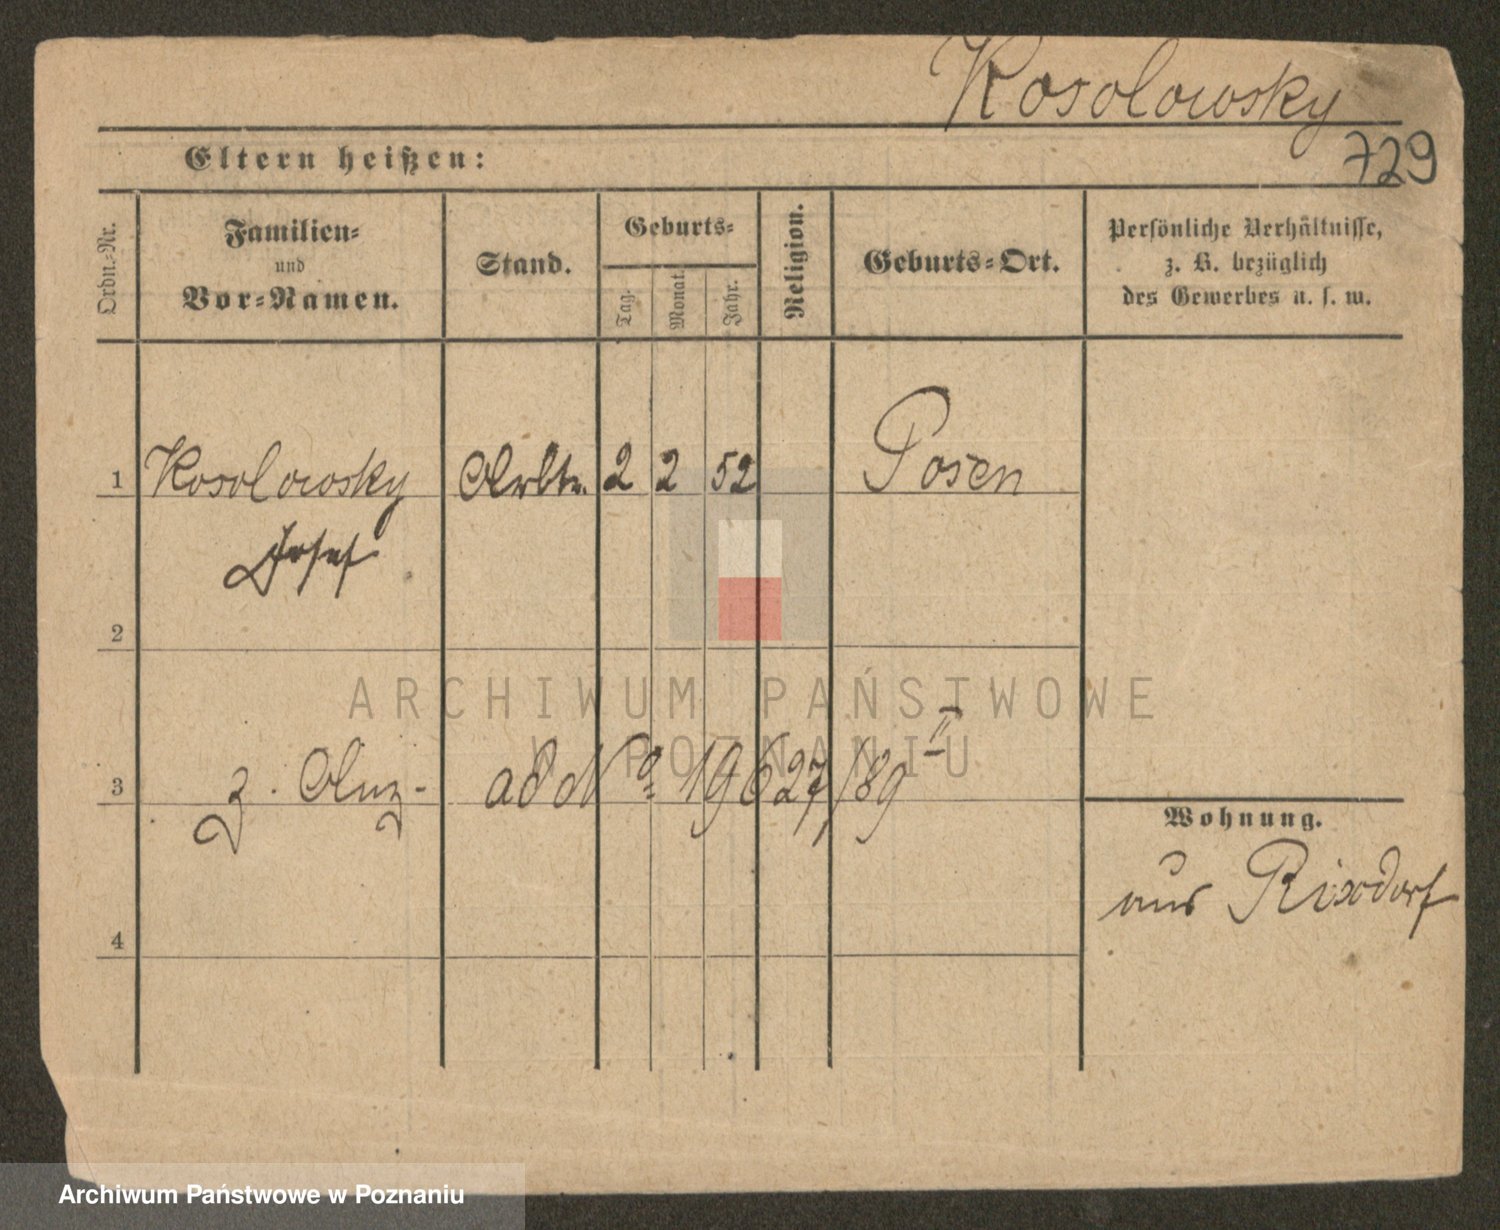 Kosolowsky
729
Eltern heißen:
Ordn.-Nr.
Familien-
und
Vor-Namen.
Stand.
Geburts-
Tag.
Monat.
Jahr.
Religion.
Geburts-Ort.
Persönliche Verhältnisse,
z. B. bezüglich
des Gewerbes u. s. w.
1 Kosolowsky Arbtr. 2 2 52 Posen
Josef
2
ARCHIWUM PAŃSTWOWE
W POZNANIU
3 z. Anz- ad No 19627/89 II
Wohnung.
aus Rixdorf
4
Archiwum Państwowe w Poznaniu